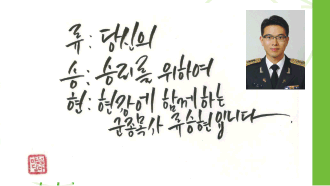 류: 당신의
승: 승리를 위하여
현: 현장에 함께 하는
군종목사 류승현입니다.